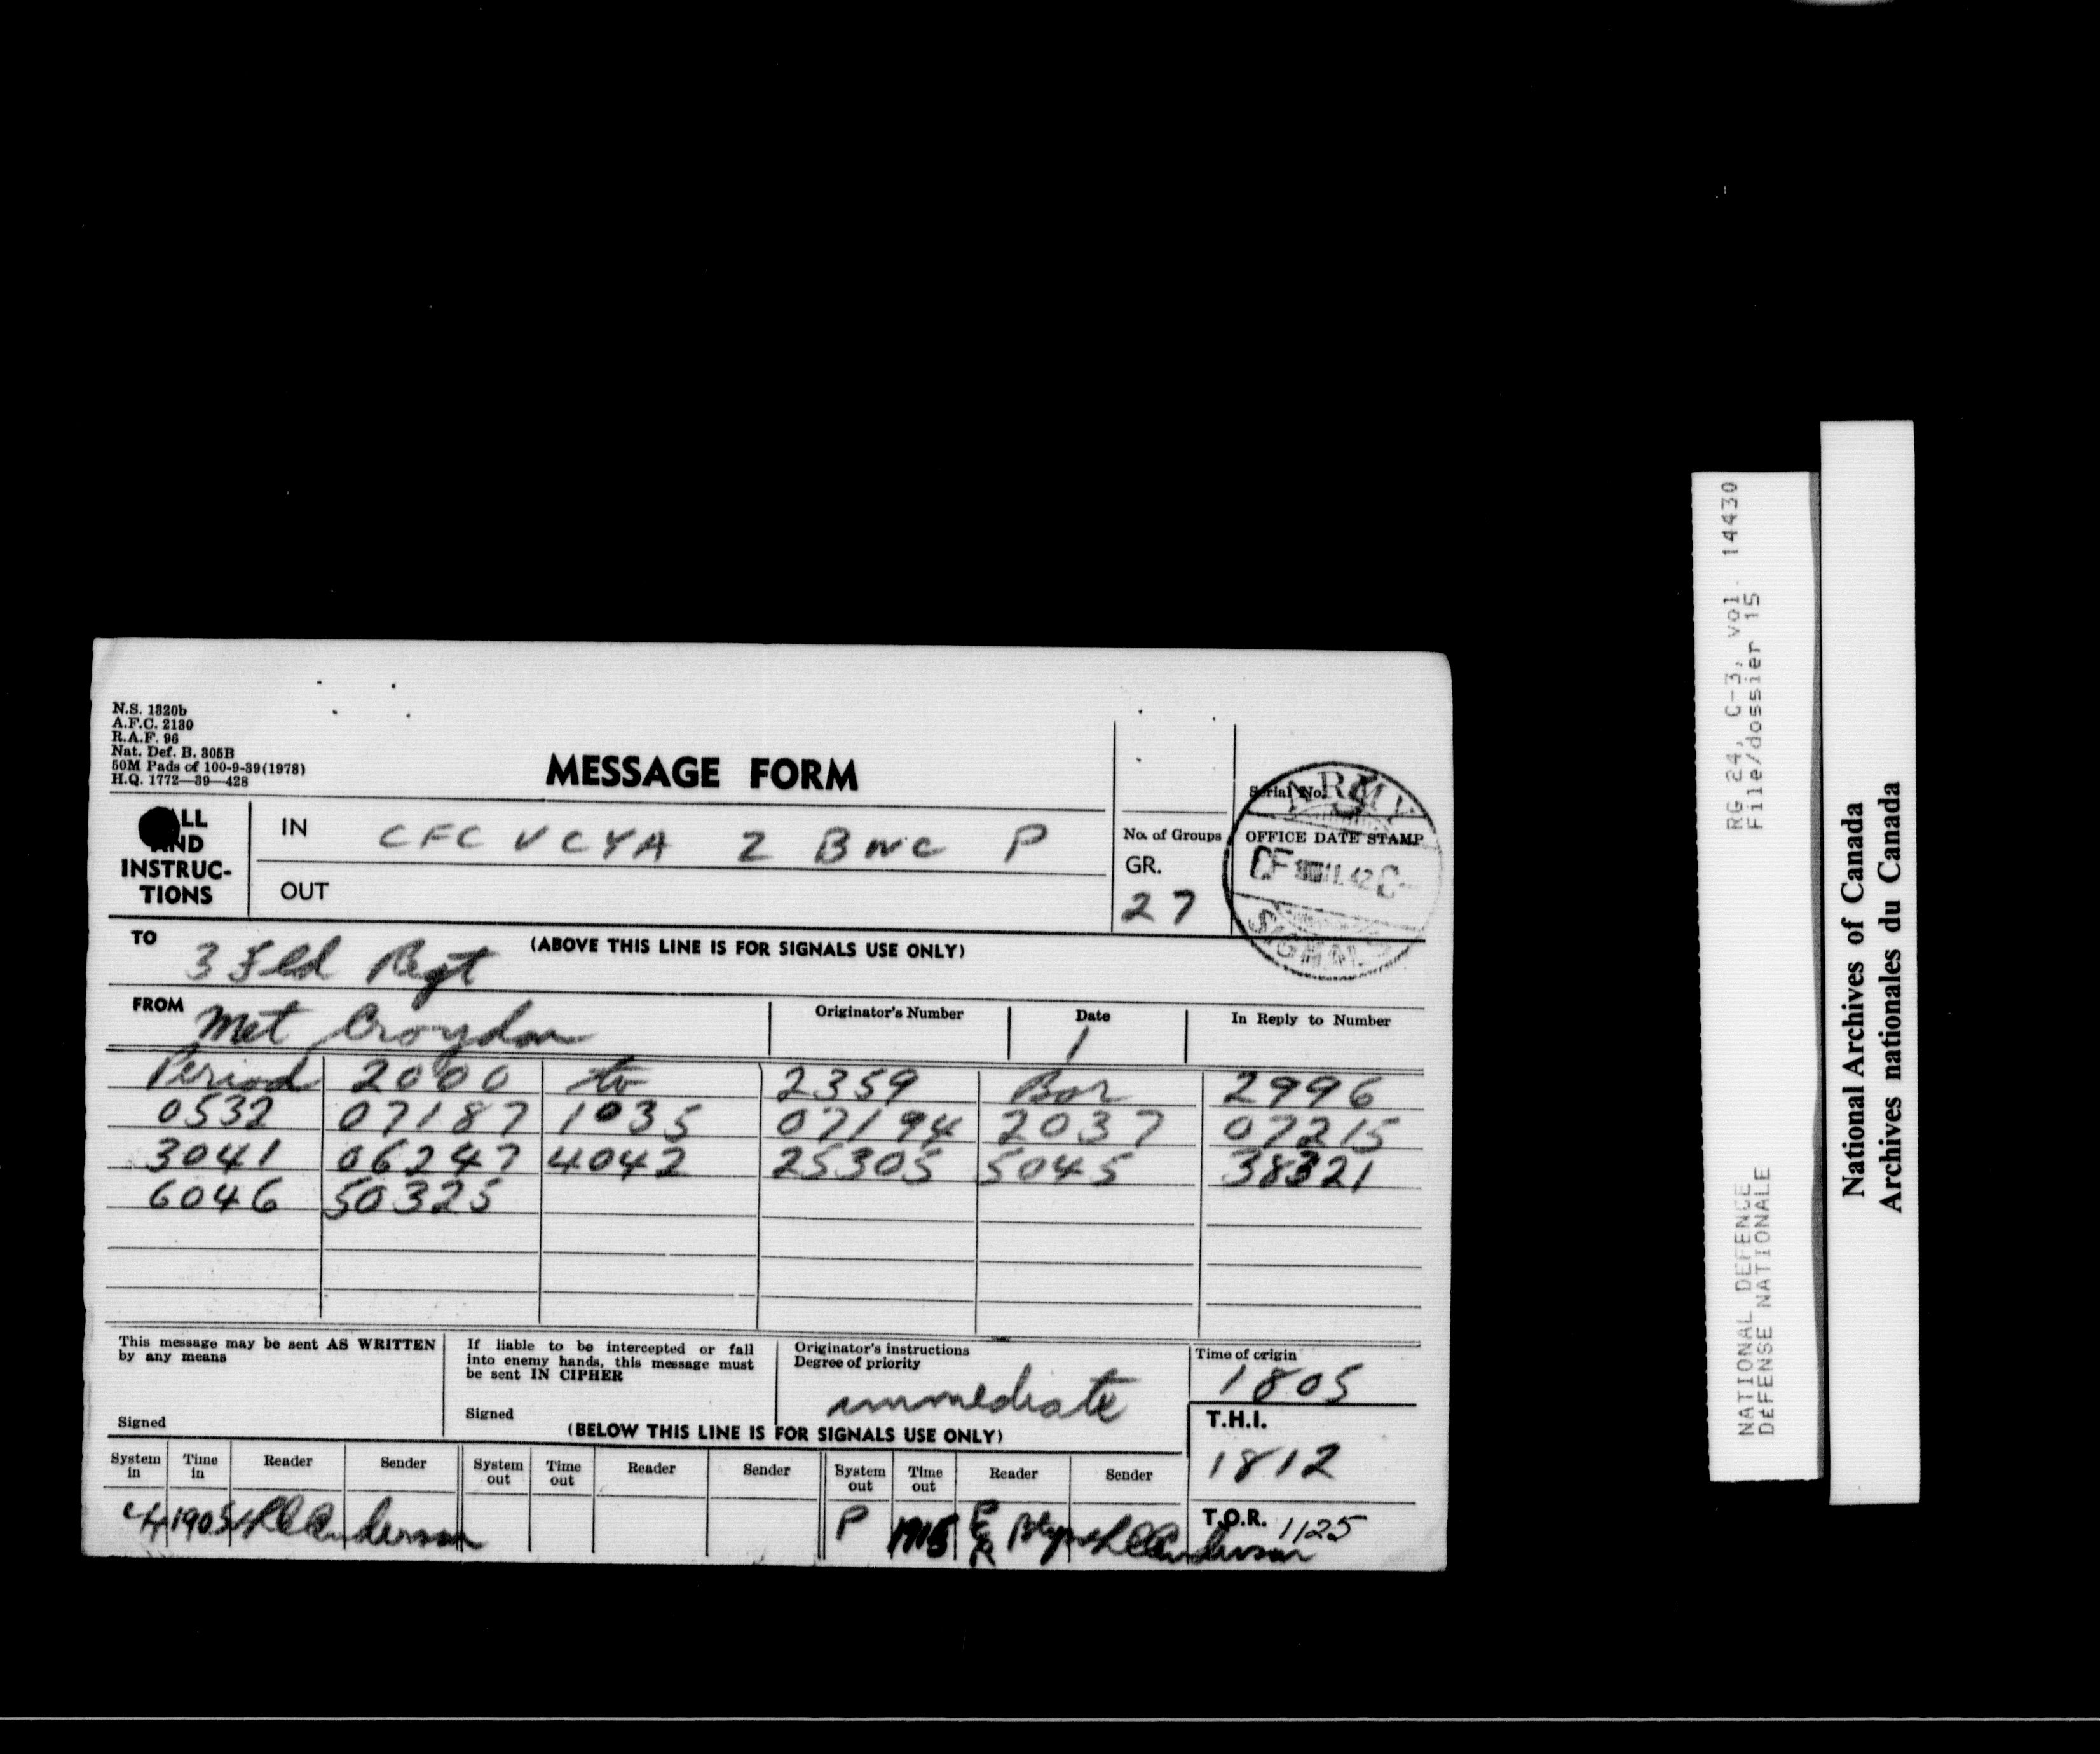 N.S. 1320b
A.F.C. 2130
R.A.F. 96
Nat. Def. B. 305B
50M Pads of 100-9-39(1978)
H.Q. 1772—39—428
MESSAGE FORM
LL
AND
INSTRUC-
TIONS
IN CFC V CYA 2 BWC P
OUT
No. of Groups
GR.
27
Serial No.
OFFICE DATE STAMP
ARMY
SIGNAL
(ABOVE THIS LINE IS FOR SIGNALS USE ONLY)
TO 3 Fld Regt
FROM Met Croydon
Originator's Number
Date 1
In Reply to Number
Period 2000 to 2359 Bar 2996
0532 07187 1035 07194 2037 07215
3041 06247 4042 25305 5045 38321
6046 50325
This message may be sent AS WRITTEN
by any means
Signed
If liable to be intercepted or fall
into enemy hands, this message must
be sent IN CIPHER
Signed
Originator's instructions
Degree of priority
immediate
Time of origin
1805
(BELOW THIS LINE IS FOR SIGNALS USE ONLY)
T.H.I.
1812
T.O.R. 1125
System in Time in Reader Sender System out Time out Reader Sender System out Time out Reader Sender
1905 Anderson P 1915 Anderson
RG 24, C-3, vol. 14430
File/dossier 15
NATIONAL DEFENCE
DÉFENSE NATIONALE
National Archives of Canada
Archives nationales du Canada